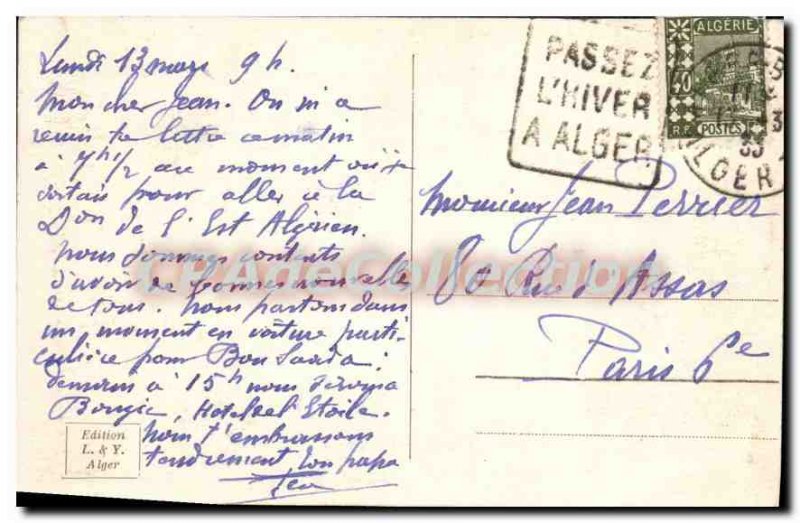 Lundi 13 mars 9h.
Mon cher Jean. On m'a
remis ta lettre ce matin
à 7h 1/2 au moment où je
sortais pour aller à la
de l'Est Algérien.
Nous sommes contents
d'avoir de bonnes nouvelles
de tous. Nous partons dans
un moment en voiture parti-
culière pour Bou Saada;
demain à 15h nous serons à
Bougie, Hotel de l'Etoile.
Nous t'embrassons
tendrement, ton papa
Edition
L. & Y.
Alger
PASSEZ
L'HIVER
A ALGER
ALGÉRIE
R.F. POSTES
ALGER
Monsieur Jean Perrier
80 Rue d'Assas
Paris 6e
CPAdeCollection